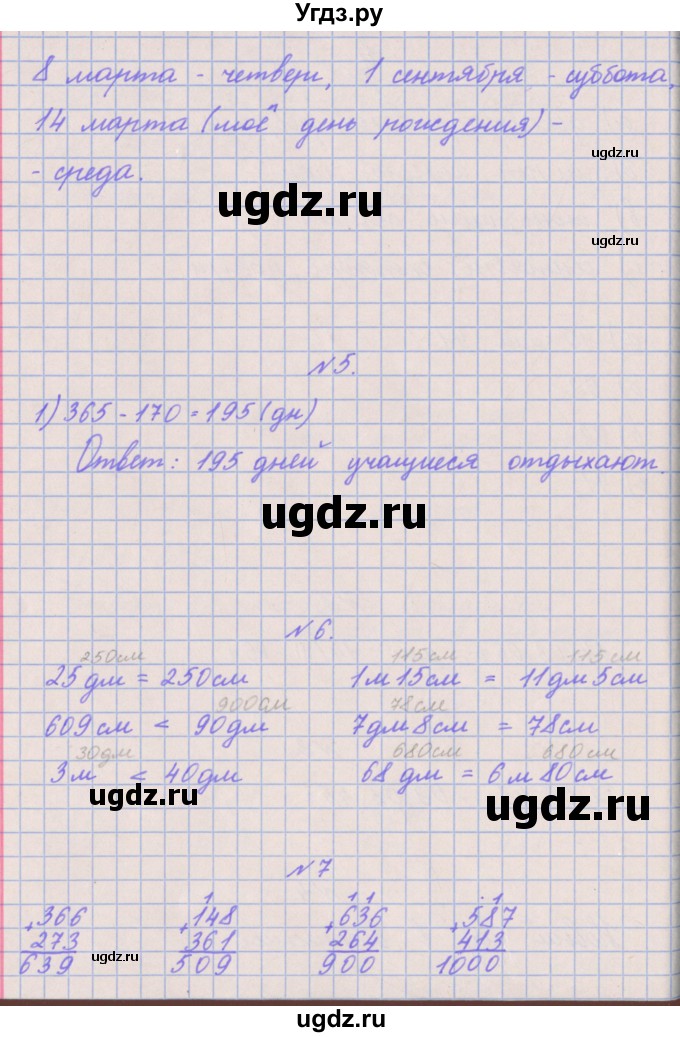 Угдз.ру
8 марта - четверг, 1 сентября - суббота,
14 марта (моё день рождения) -
- среда.
ugdz.ru
ugdz.ru
ugdz.ru
№5.
1) 365 - 170 = 195 (дн)
Ответ: 195 дней учащиеся отдыхают.
ugdz.ru
№6.
250см 115см 115см
25дм = 250см 1м 15см = 11дм 5см
900см 78см
609см < 90дм 7дм 8см = 78см
30дм 680см 680см
3м < 40дм 68дм = 6м 80см
ugdz.ru
ugdz.ru
№7
1 1 1 . 1
+366 +148 +636 +587
273 361 264 413
639 509 900 1000
ugdz.ru
ugdz.ru